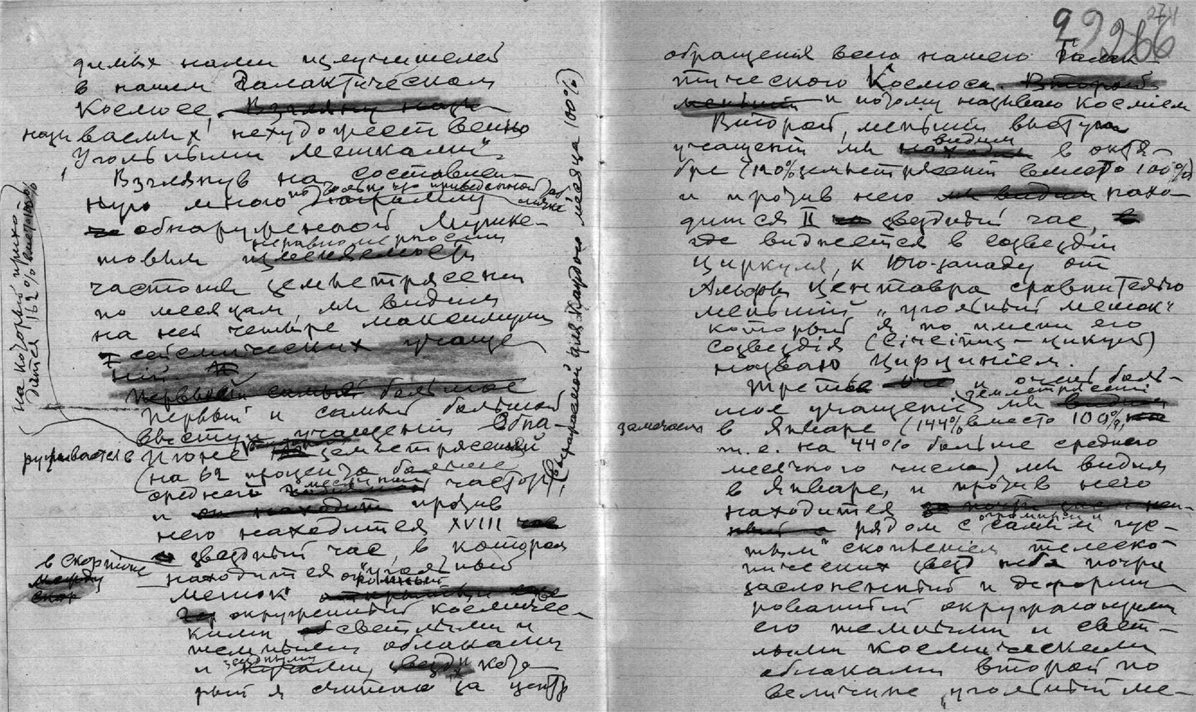 димых нами излучителей
в нашем Галактическом
Космосе. Взглянув на
называемых нехудожественно
"Угольными мешками".
Взглянув на составлен-
ную много
обнаруженной
неравномерности
частоты землетрясений
по месяцам, мы видим
на ней четыре максимума
сейсмических учаще-
ний.
Первый самый большой
Первый и самый большой
выступ учащений обна-
руживается в Июне землетрясений
(на 62 процента больше
среднего месячных частот)
и он находит против
него находится XVIII час
звездный час, в котором
в Скорпионе
между
находится "угольный
мешок" огромный
окруженный космичес-
кими светлыми и
темными облаками
и звездными кучами, кото-
рый я считаю за центр
на который прихо-
дится 162% вместо 100%
(выражаемой для каждого месяца 100%)
274
9 29266
обращения всего нашего Галак-
тического Космоса. Второй
меньший и потому называю Космием
Второй, меньший выступ
учащений мы видим в октя-
бре (120% землетрясений вместо 100%)
и против него мы видим нахо-
дится II звездный час,
где виднеется в созвездии
Циркуля, к Юго-западу от
Альфы Центавра сравнительно
меньший "угольный мешок"
который я по имени его
созвездия (Circinus - циркуль)
называю Цирцинием.
Третье и очень боль-
шое учащение землетрясений мы
замечаем в Январе (144% вместо 100%,
т.е. на 44% больше среднего
месячного числа) мы видим
в Январе, и против него
находится
рядом с огромным и самым гус-
тым скопением телеско-
пических звезд неба почти
заслоненный и деформи-
рованный окружающими
его темными и свет-
лыми космическими
облаками второй по
величине "угольный ме-